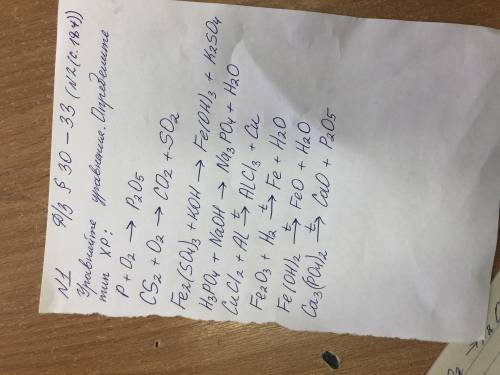 Д/з § 30-33 (N2(с.184))
N1
Уравняйте уравнения. Определите
тип ХР:
P + O2 → P2O5
CS2 + O2 → CO2 + SO2
Fe2(SO4)3 + KOH → Fe(OH)3 + K2SO4
H3PO4 + NaOH → Na3PO4 + H2O
CuCl2 + Al t→ AlCl3 + Cu
Fe2O3 + H2 t→ Fe + H2O
Fe(OH)2 t→ FeO + H2O
Ca3(PO4)2 t→ CaO + P2O5